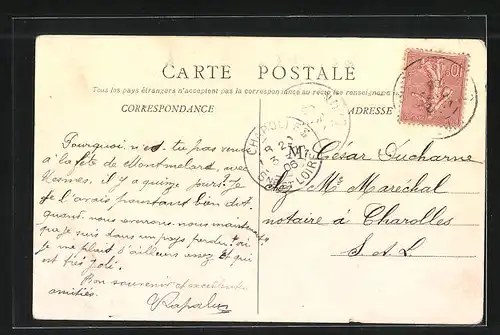 CARTE POSTALE
Tous les pays étrangers n'acceptent pas la correspondance au recto (se renseignement
CORRESPONDANCE
ADRESSE
Pourquoi n'es tu pas venu
à la fête de Montmelard, avec
il y a quinze jours? Je
te l'avais pourtant bien dit,
quand nous nous maintenant
que je suis dans un pays perdu? où
je me plais d'ailleurs assez et qui
est très joli.
Bon souvenir d'excellentes
amitiés.
CHAROLLES
8 2
06
LOIRE
M César Ducharne
chez Me Maréchal
notaire à Charolles
S. et L.
10